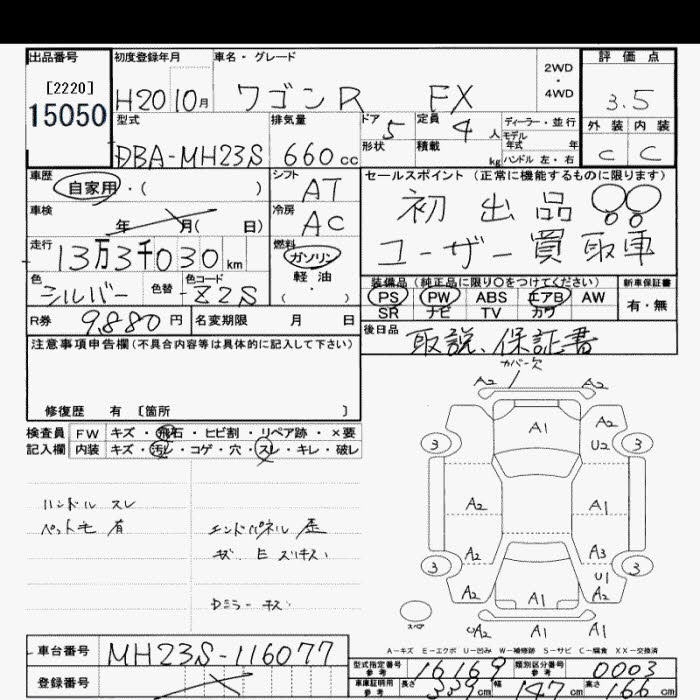 出品番号 初度登録年月 車名・グレード 2WD・4WD 評価点
[2220]
15050
H20 10月 ワゴンR FX 3.5
型式 排気量 ドア 定員 ディーラー・並行 外装 内装
DBA-MH23S 660cc 5 4人 モデル年式 年 C C
形状 積載 kg ハンドル 左・右
車歴 シフト セールスポイント(正常に機能するものに限ります)
自家用・( ) AT 初出品
車検 冷房
年 月( 日) AC ユーザー買取車
走行 燃料
13万3千030km ガソリン
軽油
・
( )
色 色替 色コード 装備品(純正品に限り○をつけてください) 新車保証書
シルバー Z2S PS PW ABS エアB AW 有・無
SR ナビ TV カワ
R券 9,880円 名変期限 月 日 後日品 取説、保証書
注意事項申告欄(不具合内容等は具体的に記入して下さい)
修復歴 有 [箇所 ]
カバー欠
A2 A2
検査員 FW キズ・飛石・ヒビ割・リペア跡・×要
記入欄 内装 キズ・汚レ・コゲ・穴・スレ・キレ・破レ
A1 A2
3 U2 3
ハンドル スレ
ペット毛 有 エンドパネル
A2 A1
A2 A3
3 U1 3
A2 A1 A2
Dミラー キズ
スペア A2 A1 A1
A-キズ E-エクボ U-凹み W-補修跡 S-サビ C-腐食 XX-交換済
車台番号 MH23S-116077
型式指定番号 参考 16169 類別区分番号 参考 0003
登録番号
車庫証明用 参考 長さ 339cm 幅 147cm 高さ 166cm